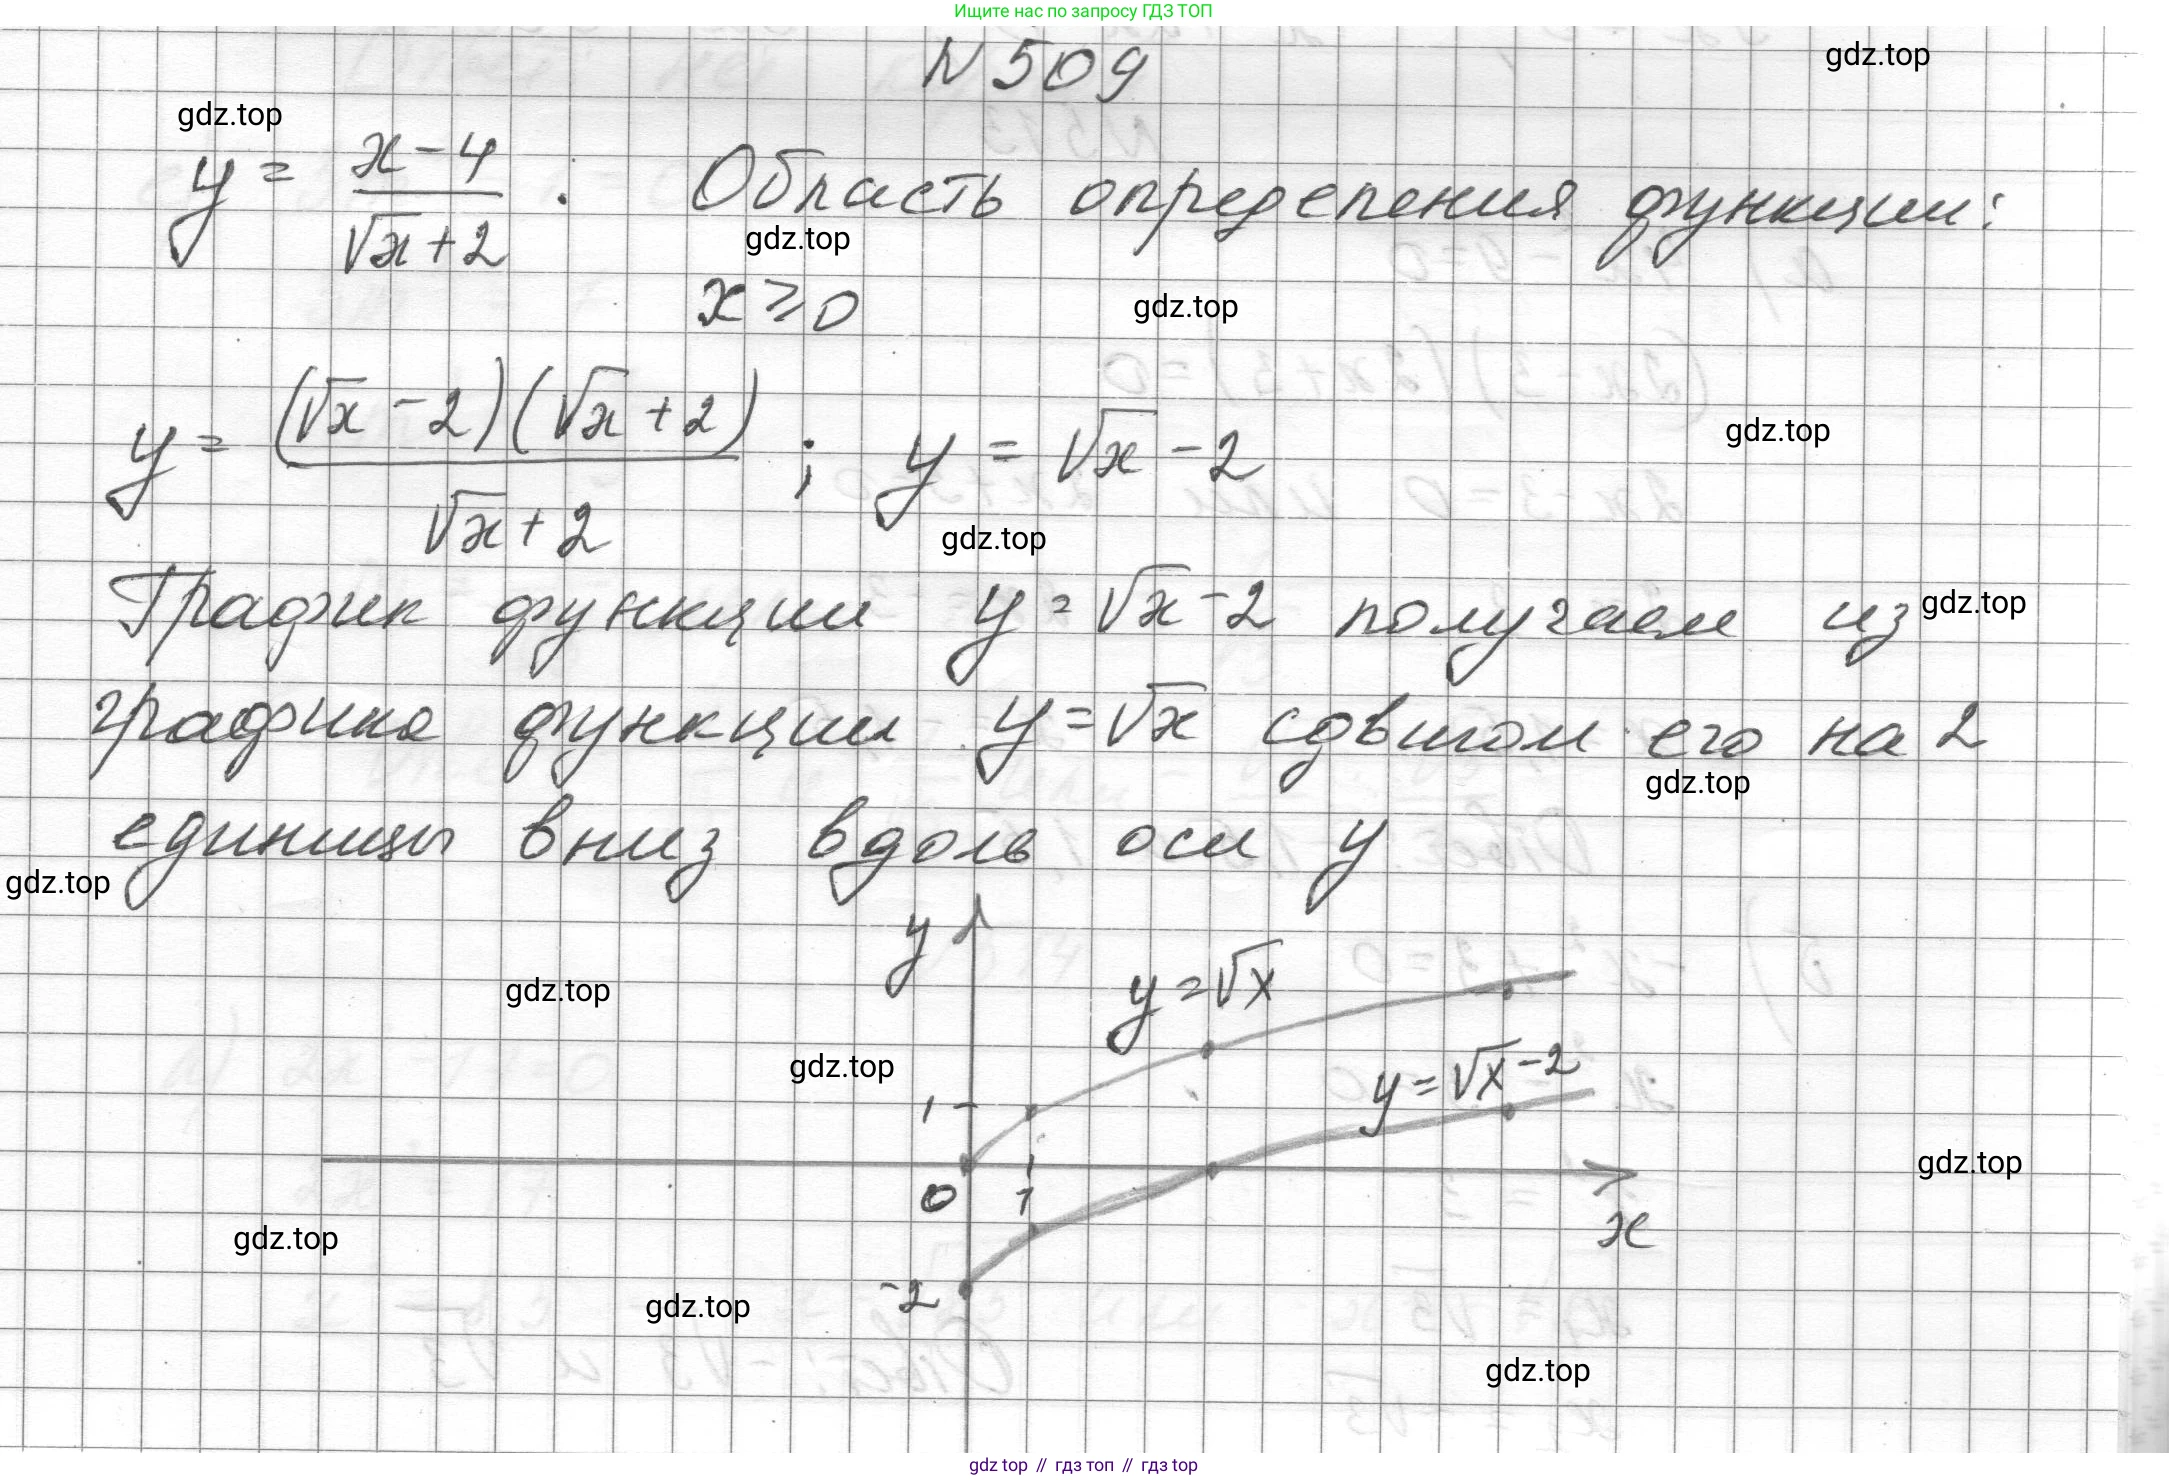 Ищите нас по запросу ГДЗ ТОП
N 509
gdz.top
gdz.top
y = (x-4)/(√x+2) : Область определения функции:
gdz.top
x ≥ 0
gdz.top
y = ((√x - 2)(√x + 2))/(√x + 2) ; y = √x - 2
gdz.top
gdz.top
График функции y = √x - 2 получаем из
gdz.top
графика функции y = √x сдвигом его на 2
gdz.top
единицы вниз вдоль оси y
gdz.top
y
y = √x
gdz.top
gdz.top
y = √x - 2
1
gdz.top
0
1
x
gdz.top
-2
gdz.top
gdz.top
gdz top // гдз топ // гдз top